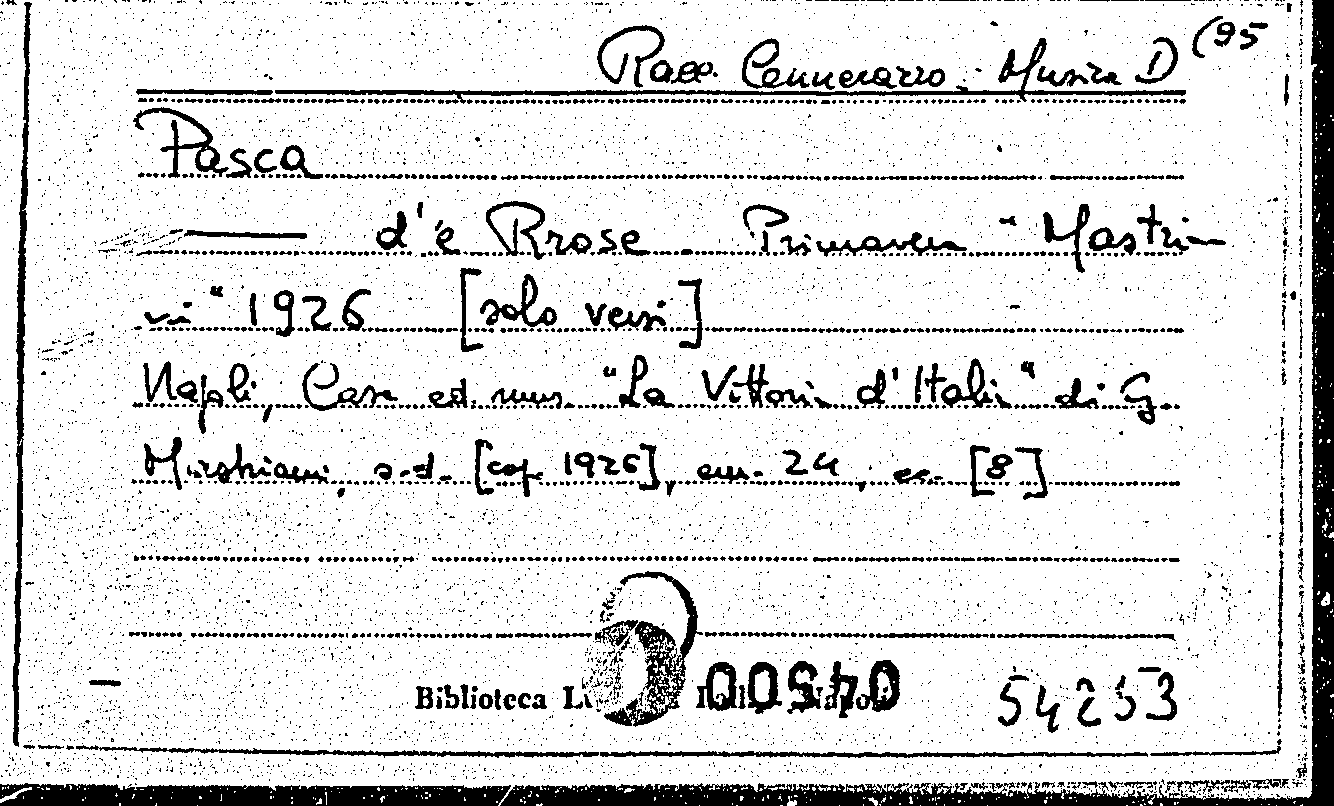 Racc. Cennerazzo: Musica D (95
Pasca
d''e Rrose. Primavera "Mastria
ni" 1926 [solo versi]
Napoli, Casa ed. mus. "La Vittoria d'Italia" di G.
s.d. [cop. 1926], 24, cc. [8]
Biblioteca Napoli 54253